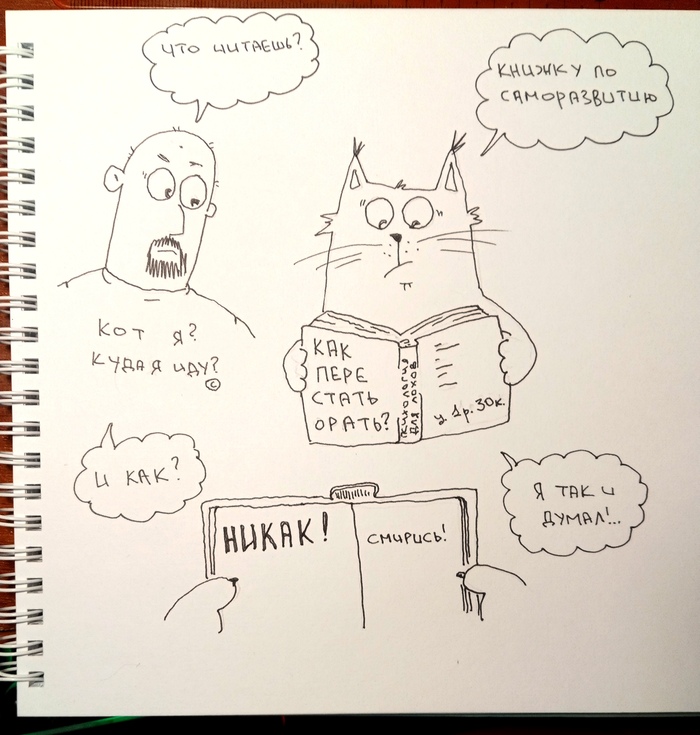 ЧТО ЧИТАЕШЬ?
КНИЖКУ ПО
САМОРАЗВИТИЮ
КОТ Я?
КУДА Я ИДУ?
©
КАК
ПЕРЕ
СТАТЬ
ОРАТЬ?
ПСИХОЛОГИЯ
ДЛЯ ЛОХОВ
Ц. 1р. 30к.
И КАК?
НИКАК!
СМИРИСЬ!
Я ТАК И
ДУМАЛ!..